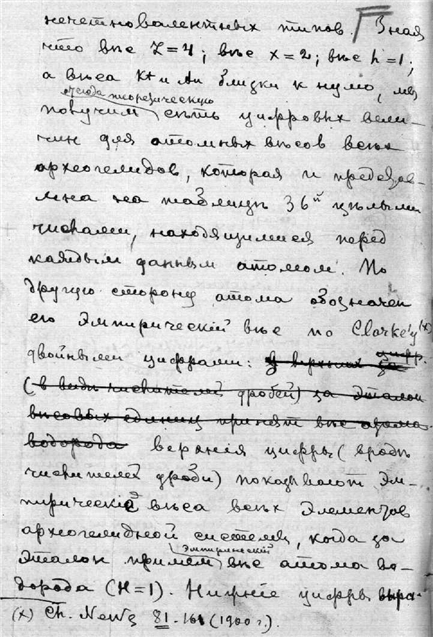 нечетновалентныхъ типов. Зная
что вѣс Z=4; вѣс x=2; вѣс h=1;
а вѣса K и An близки к нулю, мы
отсюда теоретическую
получим сѣть цифровых вели-
чин для атомных вѣсов всѣх
археогелидов, которая и представ-
лена на таблицѣ 36й цѣлыми
числами, находящимися перед
каждым данным атомом. По
другую сторону атома обозначен
его эмпирический вѣс по Clarke'у (x)
двойными цифрами: у верхних за цифр.
(в видѣ числителей дробей) за эталон
вѣсовых единиц принят вѣс атома
водорода верхния цифры (вродѣ
числителей дроби) показывают эм-
пирический вѣса всѣх элементов
археогелидной системы, когда за
эмпирический
эталон примем вѣс атома во-
дорода (H=1). Нижние цифры выра-
(x) Ch. News 81. 161 (1900 г.).